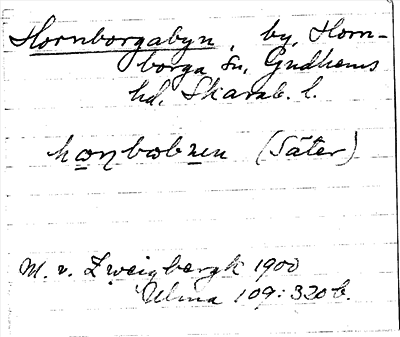 Hornborgabyn, by, Horn-
borga sn, Gudhems
hd, Skarab. l.
(Säter)
M. v. Zweigbergk 1900
Ulma 109:320 b.